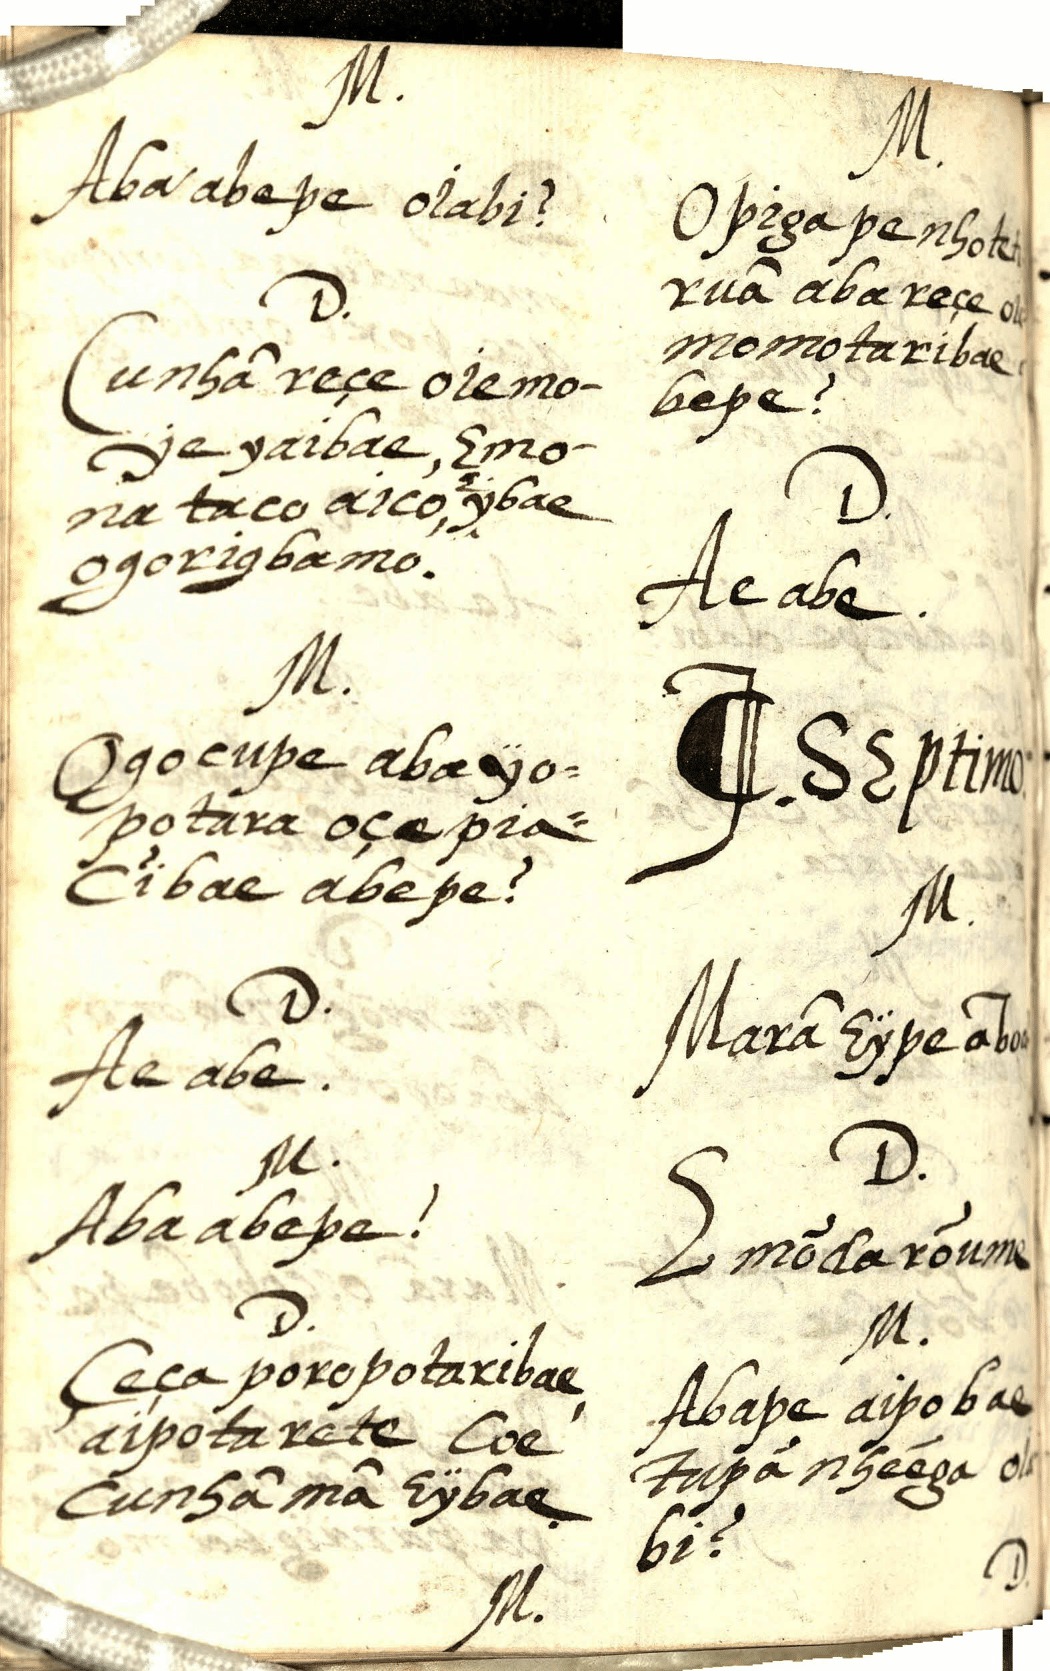 M.
Aba abepe oiabi?
D.
Cunhâ reçe oiemo-
je yaibae, Emo-
na taco aico, eybae
ogorigbamo.
M.
Ogo cupe aba yo=
potara oçe pia=
cibae abepe?
D.
Ae abe.
M.
Aba abepe?
D.
Ceça poropotaribae,
aipotarete Coe
cunhâ mâ eÿbae.
M.
M.
Opiga pe nhote
ruâ aba reçe
momotaribae
bepe?
D.
Ae abe.
¶. SEptimo.
M.
Marâ Eÿpe
D.
E mõda rõume
M.
Abape aipobae
tupá nheéga
bi?
D.